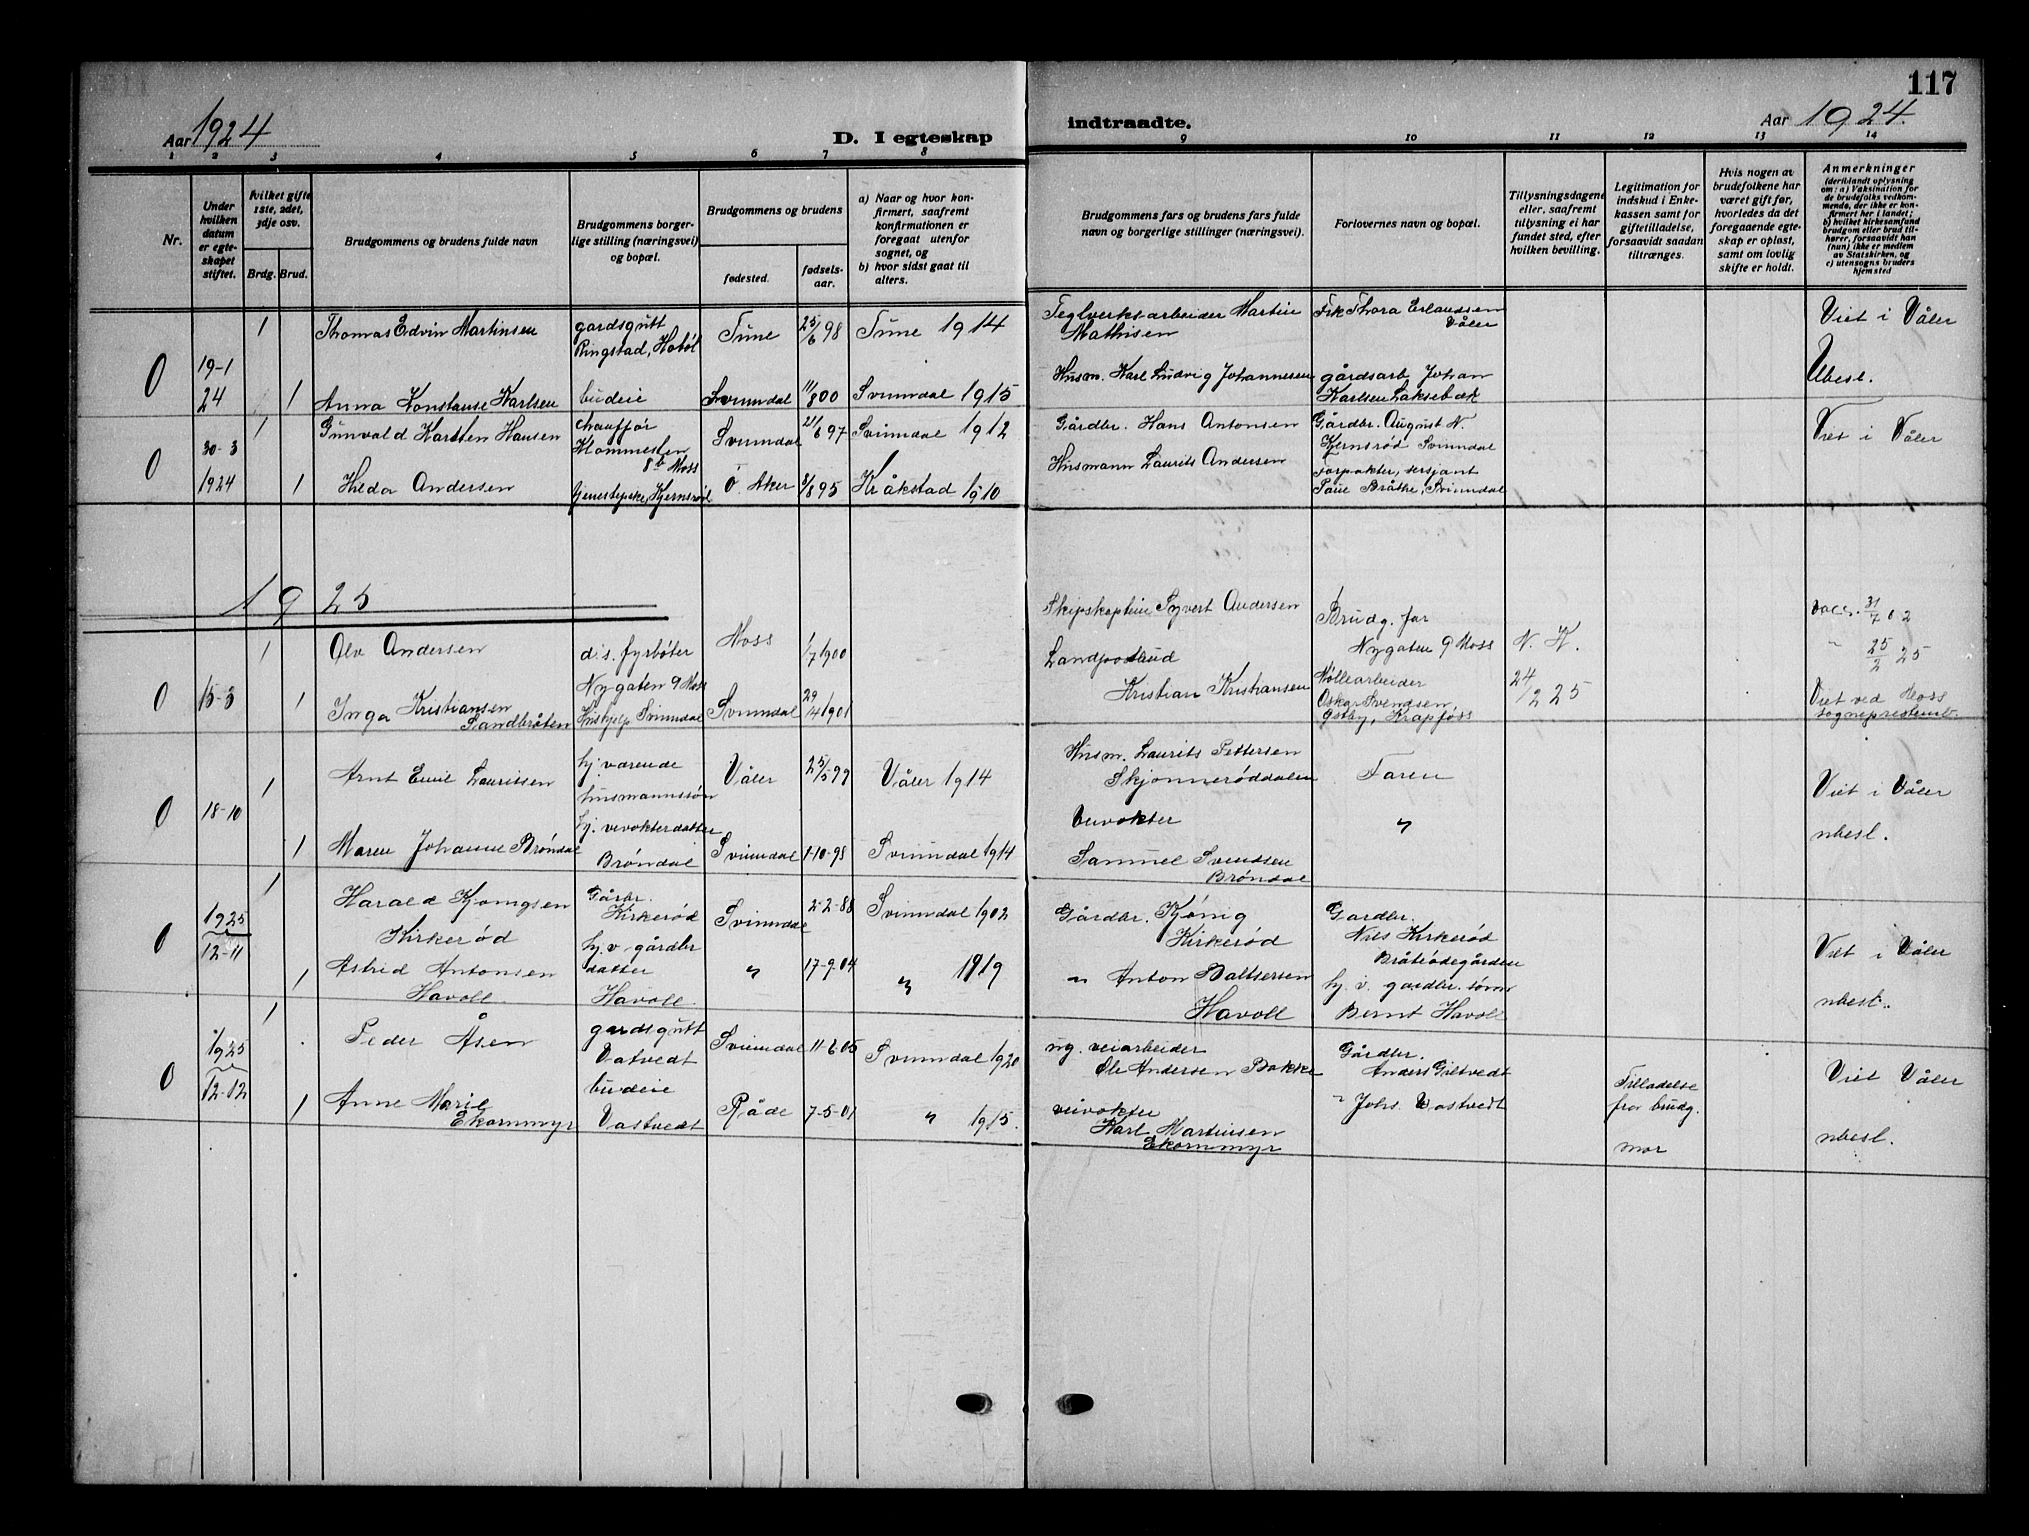 117
Aar 1924
D. I egteskap
indtraadte.
Aar 1924.
1 2 3 4 5 6 7 8 9 10 11 12 13 14
Nr.
Under hvilken datum er egteskapet stiftet.
hvilket gifte 1ste, 2det, 3dje osv.
Brdg. Brud.
Brudgommens og brudens fulde navn
Brudgommens borgerlige stilling (næringsvei) og bopæl.
Brudgommens og brudens
fødested.
fødselsaar.
a) Naar og hvor konfirmert, saafremt konfirmationen er foregaat utenfor sognet, og
b) hvor sidst gaat til alters.
Brudgommens fars og brudens fars fulde navn og borgerlige stillinger (næringsvei).
Forlovernes navn og bopæl.
Tillysningsdagene eller, saafremt tillysning ei har fundet sted, efter hvilken bevilling.
Legitimation for indskud i Enkekassen samt for giftetilladelse, forsaavidt saadan tiltrænges.
Hvis nogen av brudefolkene har været gift før, hvorledes da det foregaaende egteskap er opløst, samt om lovlig skifte er holdt.
Anmerkninger
(deriblandt oplysning om: a) Vaksination for de brudefolks vedkommende, der ikke er konfirmert her i landet; b) hvilket kirkesamfund brudgom eller brud tilhører, forsaavidt han (hun) ikke er medlem av Statskirken, og c) utensogns bruders hjemsted
0 19-1 24
1 Thomas Edvin Martinsen gardsgutt Ringstad, Hobøl Tune 25/6 98 Tune 1914 Teglverksarbeider Martin Mathisen Frk Thora Erlandsen Våler Viet i Våler
1 Anna Konstanse Karlsen budeie Svinndal 11/8 00 Svinndal 1915 Husm. Karl Ludvig Johannesen gårdsarb Johan Karlsen Laksebæk Ubesl.
0 30-3 1924
1 Gunvald Karsten Hansen chauffør Svinndal 21/6 97 Svinndal 1912 Gårdbr. Hans Antonsen Gårdbr. August N. Kjernsrød Svinndal Viet i Våler
8b Moss
1 Hilda Andersen tjenestepike, Kjernsrød Ø. Aker 8/8 95 Kråkstad 1910 Husmann Laurits Andersen Forpakter, sersjant Paul Bråthe, Svinndal
1925
0 15-3
1 Olv Andersen d.s. fyrbøter Nygaten 9 Moss Moss 1/7 1900 Skipskaptein Syvert Andersen Brudg. far Nygaten 9 Moss N. K. 24/2 25 vacc. 31/7 02
1 Inga Kristiansen Sandbråten Svinndal 29/4 1901 Landpostbud Kristian Kristiansen Møllearbeider Oskar Svendsen, Østby, Krapføss " 25/2 25 Viet ved Moss sogneprestemb.
0 18-10
1 Arnt Emil Lauritsen hj. værende husmannssøn Våler 25/5 97 Våler 1914 Husm. Laurits Pettersen Skjønnerøddalen Faren Viet i Våler
1 Maren Johanne Brøndal hj. veivokterdatter Brøndal Svinndal 1-10-98 Svinndal 1914 Veivokter Samuel Svendsen Brøndal " ubesl.
0 1925 12-11
1 Harald Kongsen Kirkerød Gårbr. Kirkerød Svinndal 2-2-88 Svinndal 1902 Gårdbr. König Kirkerød Gardbr. Nils Kirkerød Viet i Våler
1 Astrid Antonsen Havoll hj. v. gårdbr datter Havoll " 17-9-04 " 1919 " Anton Baltsersen Havoll hj. v. gardbr. sønn Bernt Havoll ubesl.
0 1925 12-12
1 Peder Åsen gardsgutt Vatvedt Svinndal 11-6-05 Svinndal 1920 ug. veiarbeider Ole Andersen Bakke Gårdbr. Anders Giltvedt Tilladelse fra brudg. mor Viet Våler
1 Anne Marie Ekornmyr budeie Vastvedt Råde 7-5-01 " 1915. veivokter Karl Martinsen Ekornmyr " Johs. Vastvedt ubesl.